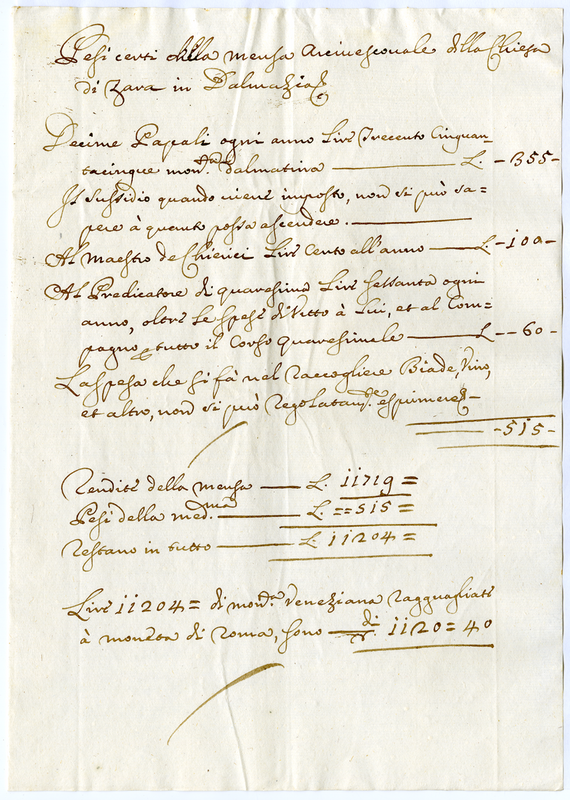 Pesi certi della mensa Arcivescovale della Chiesa
di Zara in Dalmazia
Decime Papali ogni anno Lire Trecento Cinquan-
tacinque mon.ta dalmatina ——— L. -355-
Il sussidio quando viene imposto, non si può sa=
pere à quanto possa ascendere. ———
Al Maestro de Chierici Lire Cento all'anno —— L -100-
Al Predicatore di quaresima Lire sessanta ogni
anno, oltre le spese di vitto à lui, et al Com=
pagno p tutto il Corso quaresimale —— L -- 60 -
La spesa che si fà nel raccogliere Biade, Vino,
et altro, non si può regolatam.te esprimere -
—— -515-
Rendite della mensa —— L. 11719 =
Pesi della med.ma —— L. == 515 =
restano in tutto —— L. 11204 =
Lire 11204 = di mon.ta Veneziana ragguagliate
à moneta di Roma, sono —— di 1120 = 40